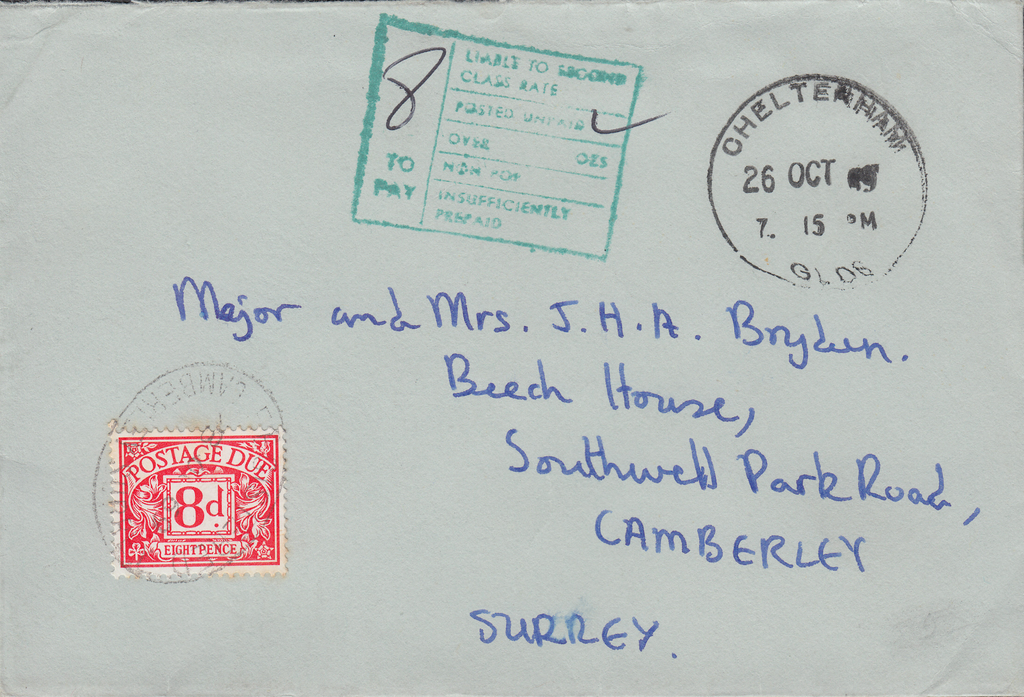 8
TO
PAY
LIABLE TO SECOND
CLASS RATE
POSTED UNPAID
OVER OZS
NON POF
INSUFFICIENTLY
PREPAID
CHELTENHAM
26 OCT
7. 15 PM
GLOS
Major and Mrs. J. H. A. Bryden.
Beech House,
Southwell Park Road,
CAMBERLEY
SURREY.
POSTAGE DUE
8d.
EIGHTPENCE